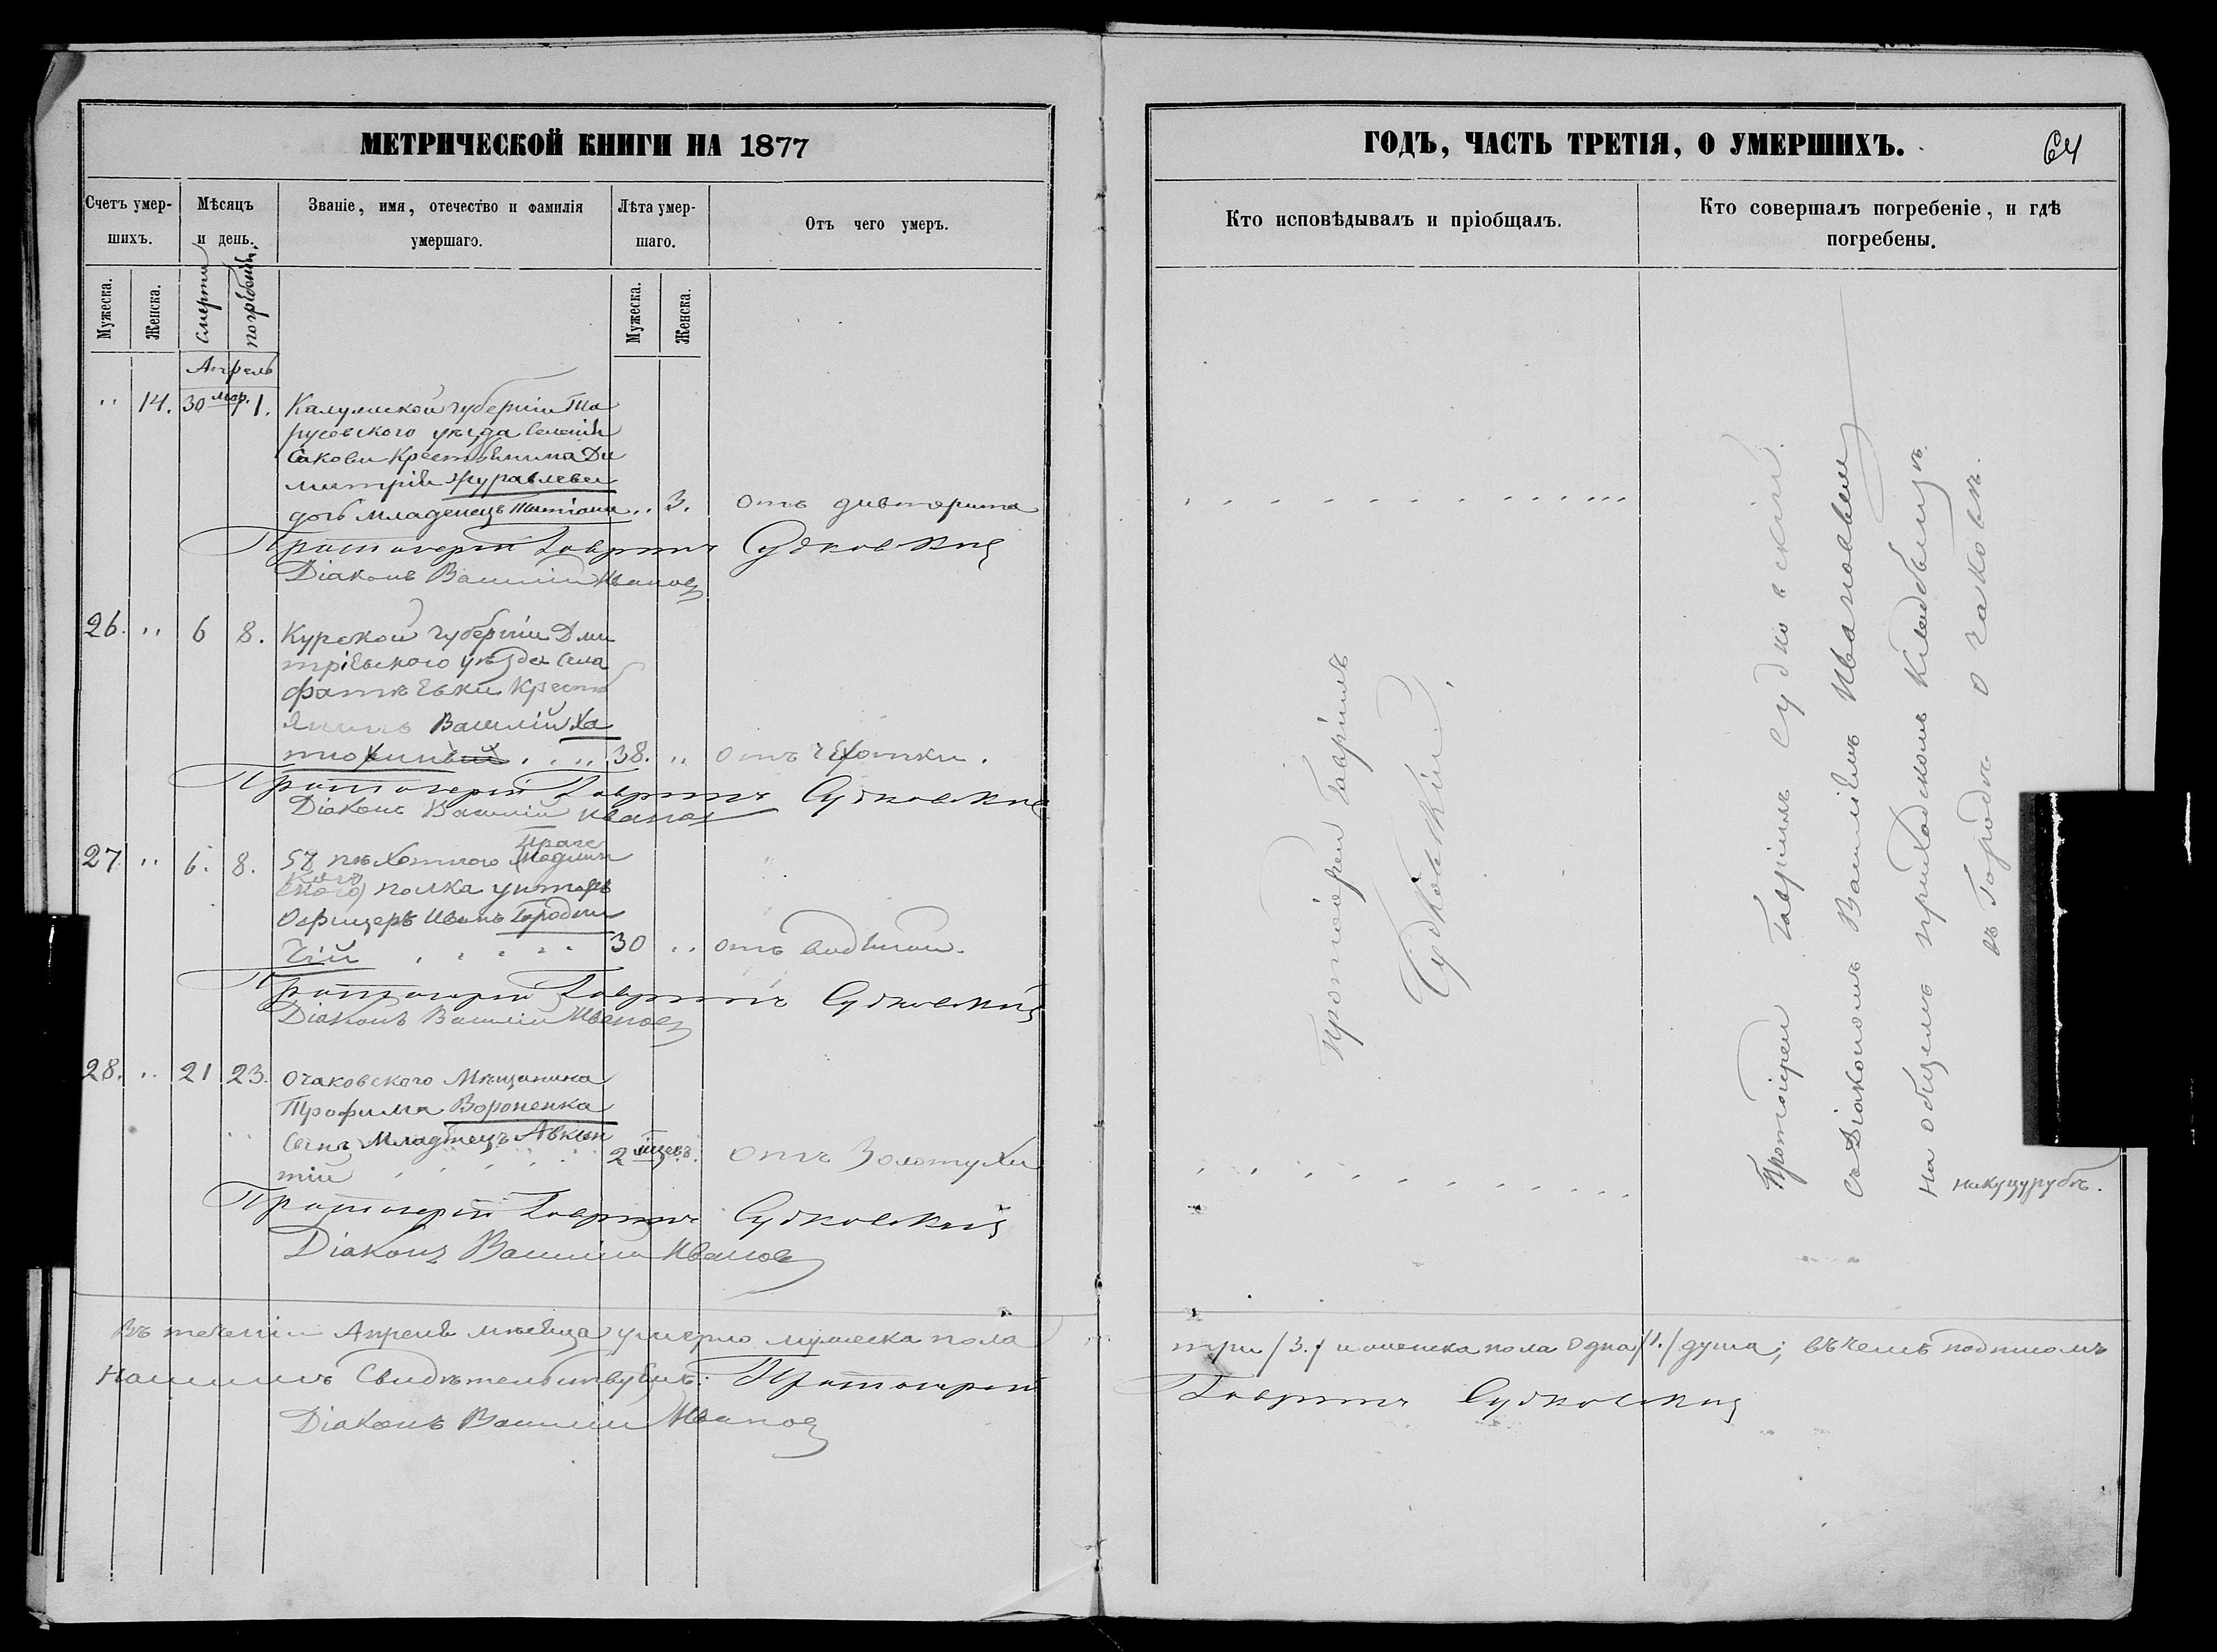 МЕТРИЧЕСКОЙ КНИГИ НА 1877
Счетъ умер-
шихъ.
Мѣсяцъ
и день.
Званіе, имя, отечество и фамилія
умершаго.
Лѣта умер-
шаго.
Отъ чего умеръ.
Мужеска.
Женска.
Смерти
погребенія
Мужеска.
Женска.
Апрель
" 14. 30 мар. 1. Калужской губерніи Та
русовского уѣзда Селенія
Саковы Крестьянина Ди
митрія Журавлева
дочь младенецъ Татіана .. 3. отъ дивтерита
Протоіерей Гавріилъ Судковскій
Діаконъ Василій Ивановъ
26. " 6 8. Курской губерніи Дми
тріевского уѣзда Села
Фатѣевки Кресть
янинъ Василій Ха
тюхинъ . . " 38. " отъ чахотки.
Протоіерей Гавріилъ Судковскій
Діаконъ Василій Ивановъ
Праге
27. " 6. 8. 58 пѣхотного Модлин
ского полка унтеръ
Офицеръ Иванъ Городни
чій . . . . . 30 " отъ водяной.
Протоіерей Гавріилъ Судковскій
Діаконъ Василій Ивановъ
28. " 21 23. Очаковского Мѣщанина
Трофима Вороненка
Сынъ Младенецъ Авксен
тій 2 мѣсяцевъ. отъ Золотухи
Протоіерей Гавріилъ Судковскій
Діаконъ Василій Ивановъ
Въ теченіи Апреля мѣсяца умерло мужеска пола
нашимъ Свидѣтельствуемъ: Протоіерей
Діаконъ Василій Ивановъ
ГОДЪ, ЧАСТЬ ТРЕТІЯ, О УМЕРШИХЪ.
64
Кто исповѣдывалъ и пріобщалъ.
Кто совершалъ погребеніе, и гдѣ
погребены.
Протоіерей Гавріилъ
Судковскій.
Протоіерей Гавріилъ Судковскій.
съ Діакономъ Василіемъ Ивановымъ
на общемъ приходскомъ Кладбищѣ
въ Городѣ Очаковѣ.
три /3./ и женска пола одна /1./ душа; въ чемъ подписомъ
Гавріилъ Судковскій